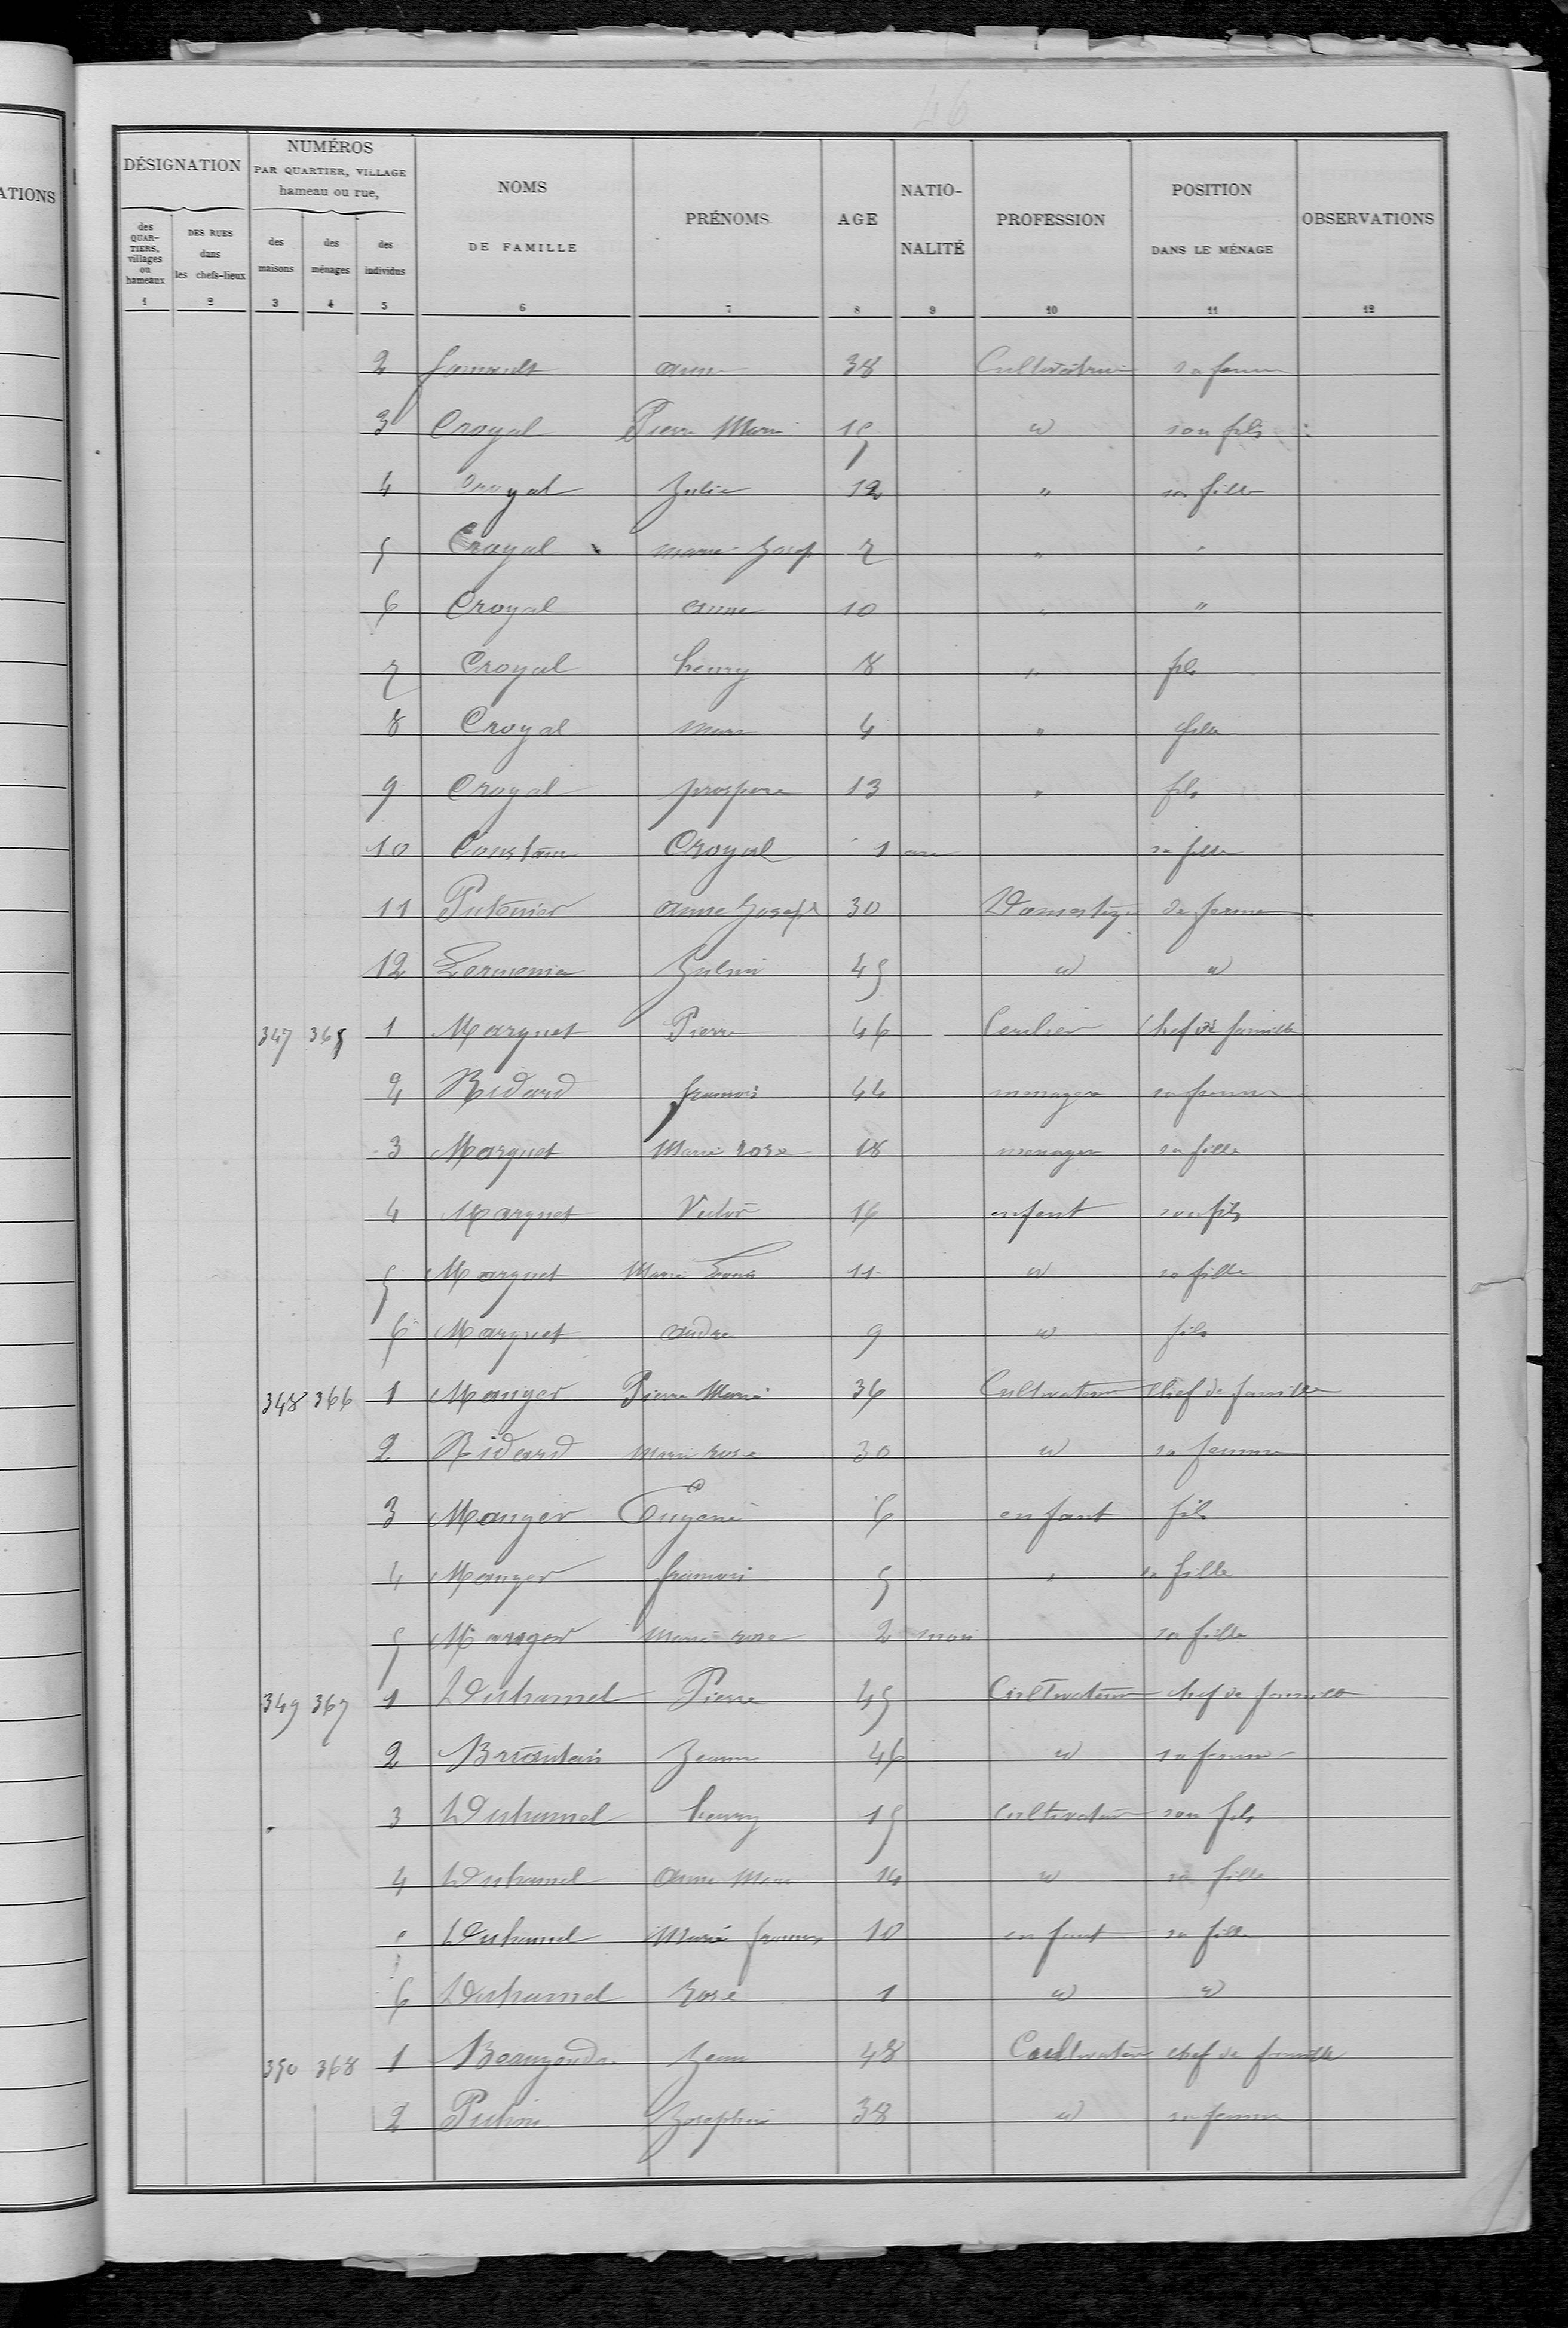 46
DÉSIGNATION
NUMÉROS
PAR QUARTIER, VILLAGE
hameau ou rue,
NOMS
DE FAMILLE
PRÉNOMS
AGE
NATIO-
NALITÉ
PROFESSION
POSITION
DANS LE MÉNAGE
OBSERVATIONS
des
QUAR-
TIERS,
villages
ou
hameaux
DES RUES
dans
les chefs-lieux
des
maisons
des
ménages
des
individus
1 2 3 4 5 6 7 8 9 10 11 12
ATIONS
2 anne 38 Cultivatrice sa femme
3 Croyal Pierre Marie 15 " son fils
4 Croyal Julie 12 " sa fille
5 Croyal marie Josep 7 " "
6 Croyal anne 10 " "
7 Croyal henry 8 " fils
8 Croyal 4 " fille
9 Croyal prospere 13 " fils
10 Croyal 1 an sa fille
11 anne Joseph 30 de ferme
12 45 " "
347 365 1 Marquet Pierre 46 chef de famille
2 Ridard francois 44 menagere sa femme
3 Marquet Marie rose 18 menagere sa fille
4 Marquet Victor 14 enfant son fils
5 Marquet Marie Louis 11 " sa fille
6 Marquet andre 9 " fils
348 366 1 Mauger Pierre Marie 36 Cultivateur chef de famille
2 Ridard marie rose 30 " sa femme
3 Mauger Eugene 6 enfant fils
4 Mauger francois 5 " sa fille
5 Mauger marie rose 2 mois sa fille
349 367 1 Duhamel Pierre 45 Cultivateur chef de famille
2 Jeanne 46 " sa femme
3 Duhamel henry 15 cultivateur son fils
4 Duhamel anne Marie 14 " sa fille
5 Duhamel Marie 10 enfant sa fille
6 Duhamel rose 1 " "
350 368 1 Jean 48 Cultivateur chef de famille
2 Josephine 38 " sa femme